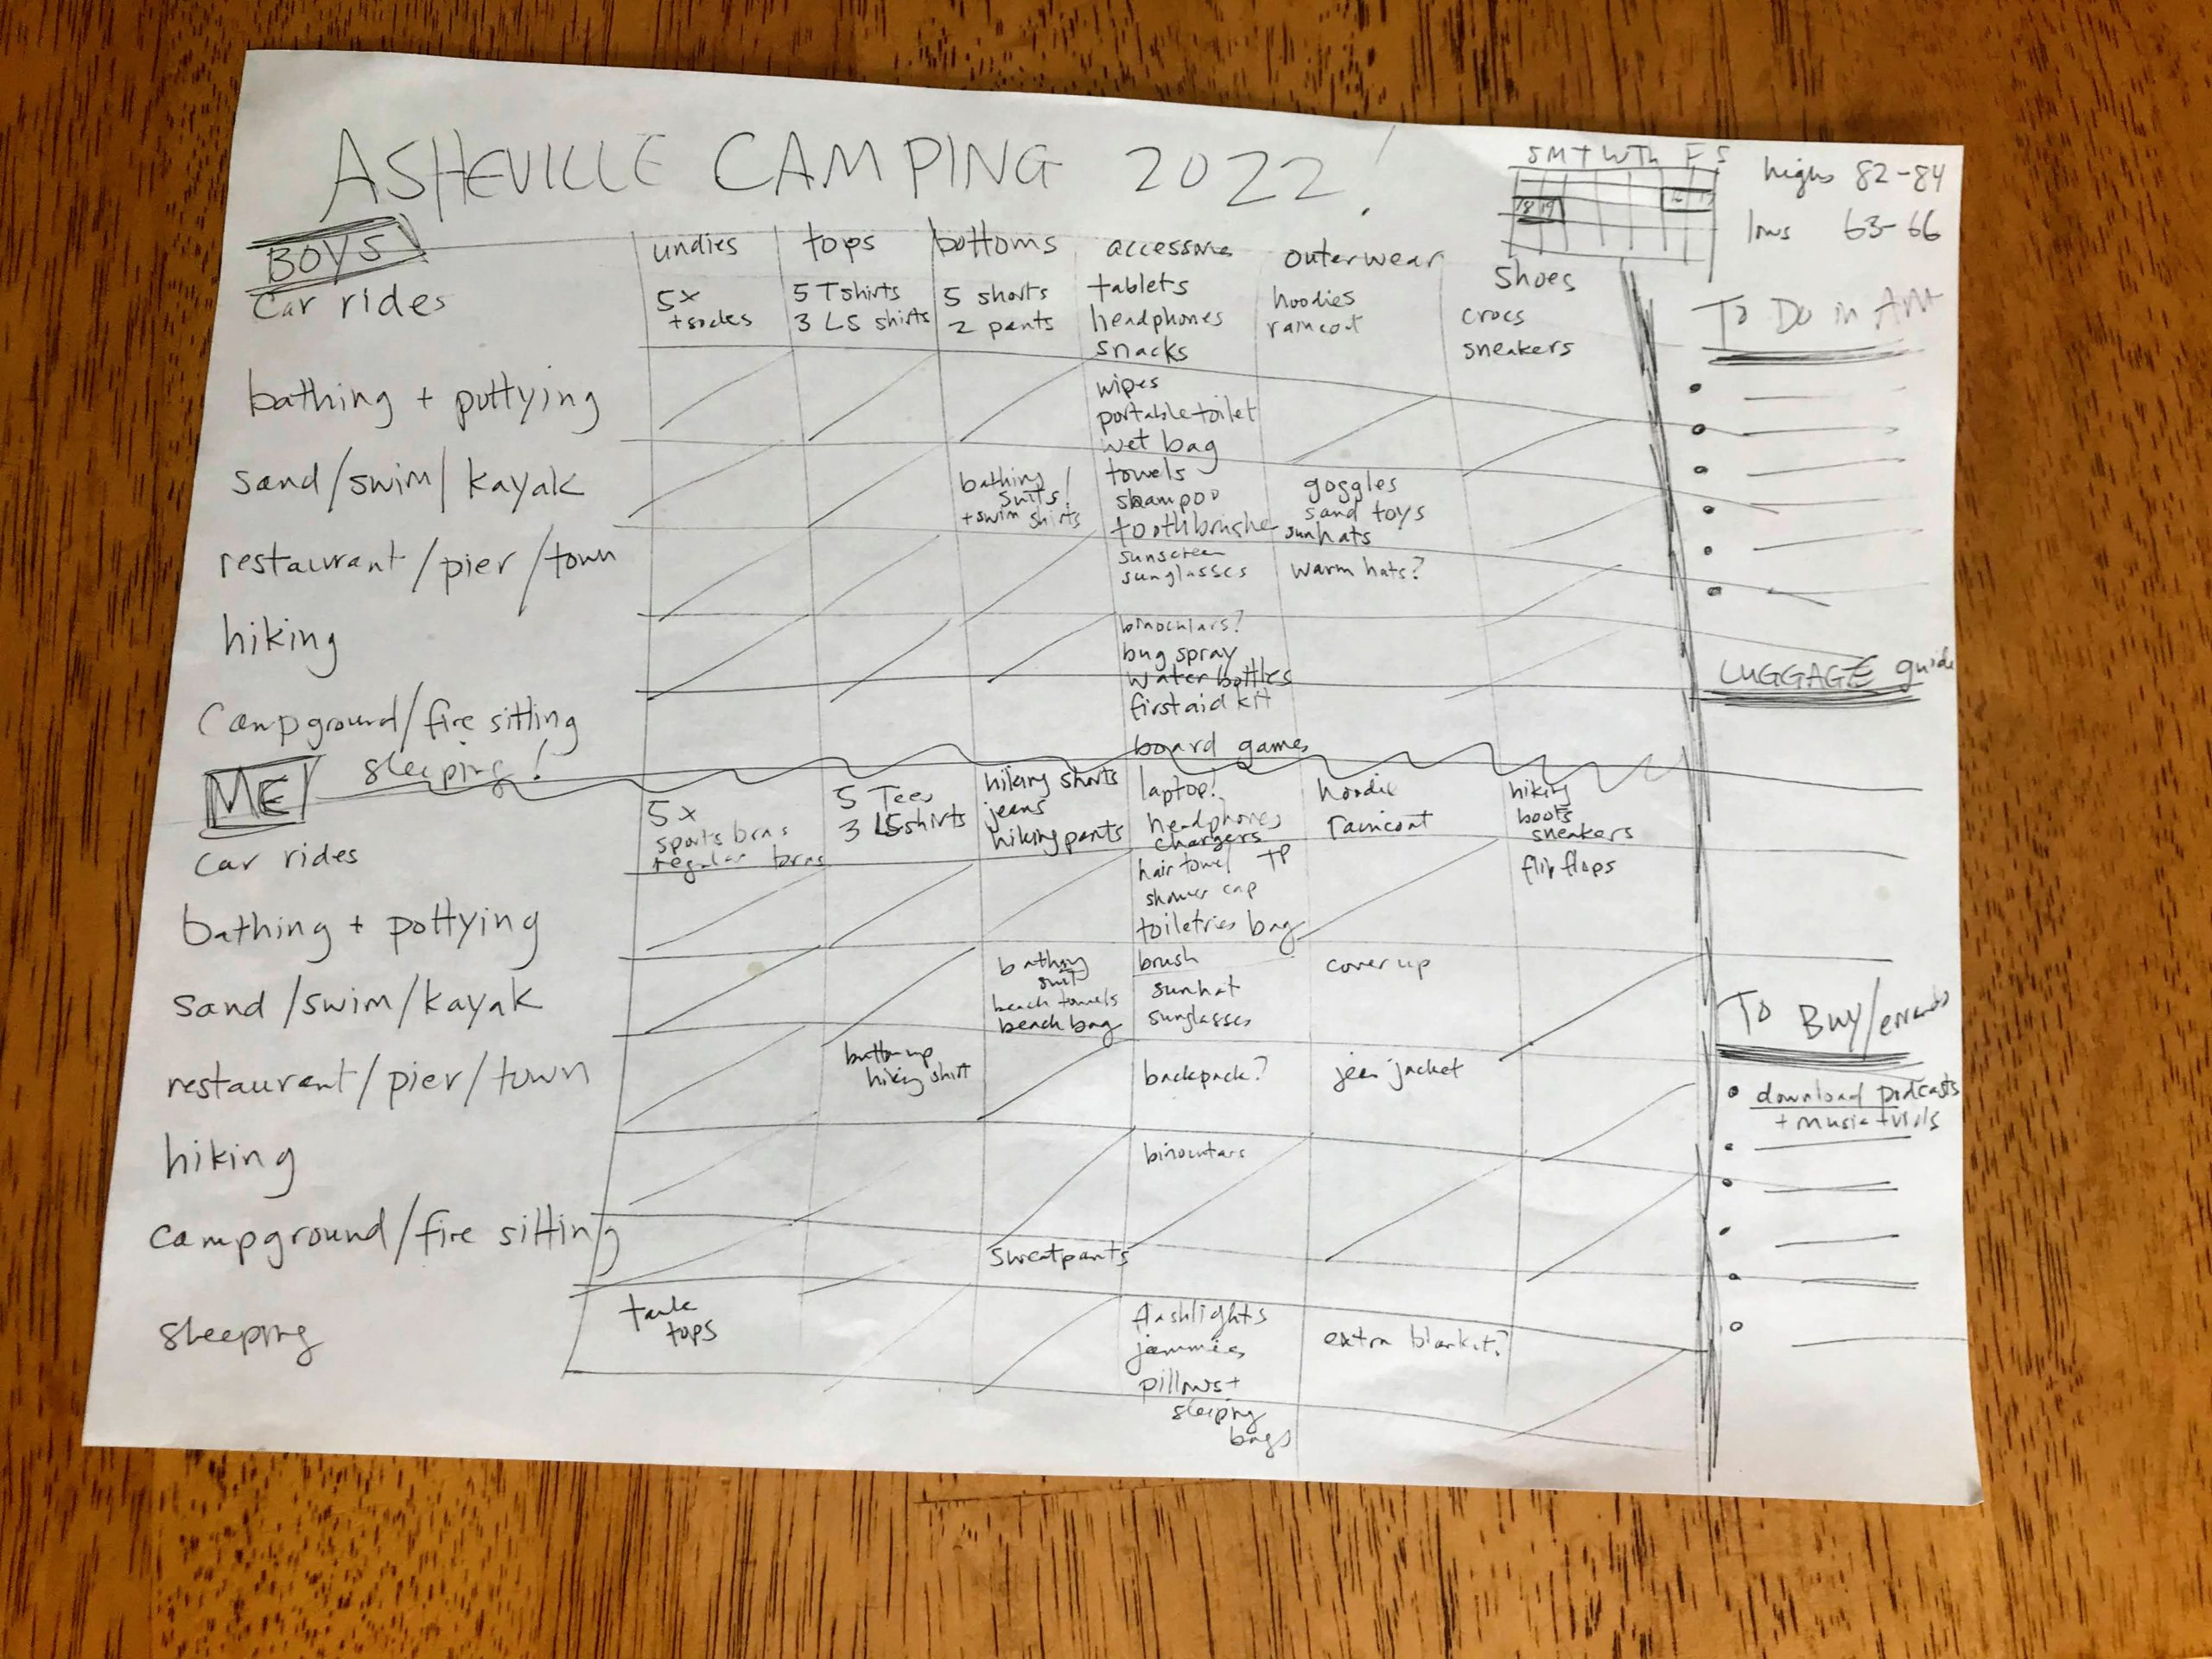 ASHEVILLE CAMPING 2022!
S M T W Th F S
18 19
highs 82-84
lows 63-66
BOYS
undies
tops
bottoms
outerwear
shoes
car rides
5x
+ socks
5 Tshirts
3 LS shirts
5 shorts
2 pants
tablets
headphones
snacks
hoodies
raincoat
crocs
sneakers
To Do in
bathing + pottying
wipes
portable toilet
wet bag
sand/swim/kayak
bathing
suits!
+ swim shirts
towels
shampoo
goggles
sand toys
sunhats
restaurant/pier/town
sunscreen
sunglasses
warm hats?
hiking
binoculars?
bug spray
water bottles
first aid kit
LUGGAGE guide
campground/fire sitting
sleeping!
board games
ME
car rides
5x
sports bras
regular bras
5 Tees
3 LS shirts
hiking shorts
jeans
hiking pants
laptop!
headphones
chargers
hoodie
raincoat
hiking
boots
sneakers
flip flops
bathing + pottying
hair towel TP
shower cap
toiletries bag
brush
sand/swim/kayak
bathing
suit
beach towels
beach bag
sunhat
sunglasses
cover up
To Buy/errands
restaurant/pier/town
button up
hiking shirt
backpack?
jean jacket
download podcasts
+ music + vids
hiking
binoculars
campground/fire sitting
sweatpants
sleeping
tank
tops
flashlights
jammies
pillows +
sleeping
bags
extra blanket?